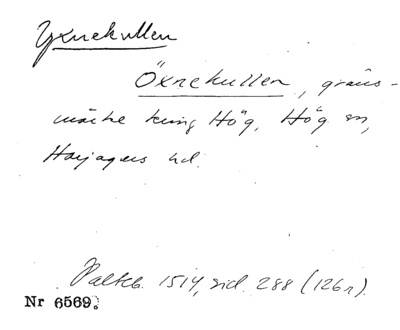 Yxnekullen
Öxnekullen, gräns-
märke kring Hög, Hög sn,
Harjagers hd.
Palteb. 1514, sid. 288 (126r).
Nr 6569.